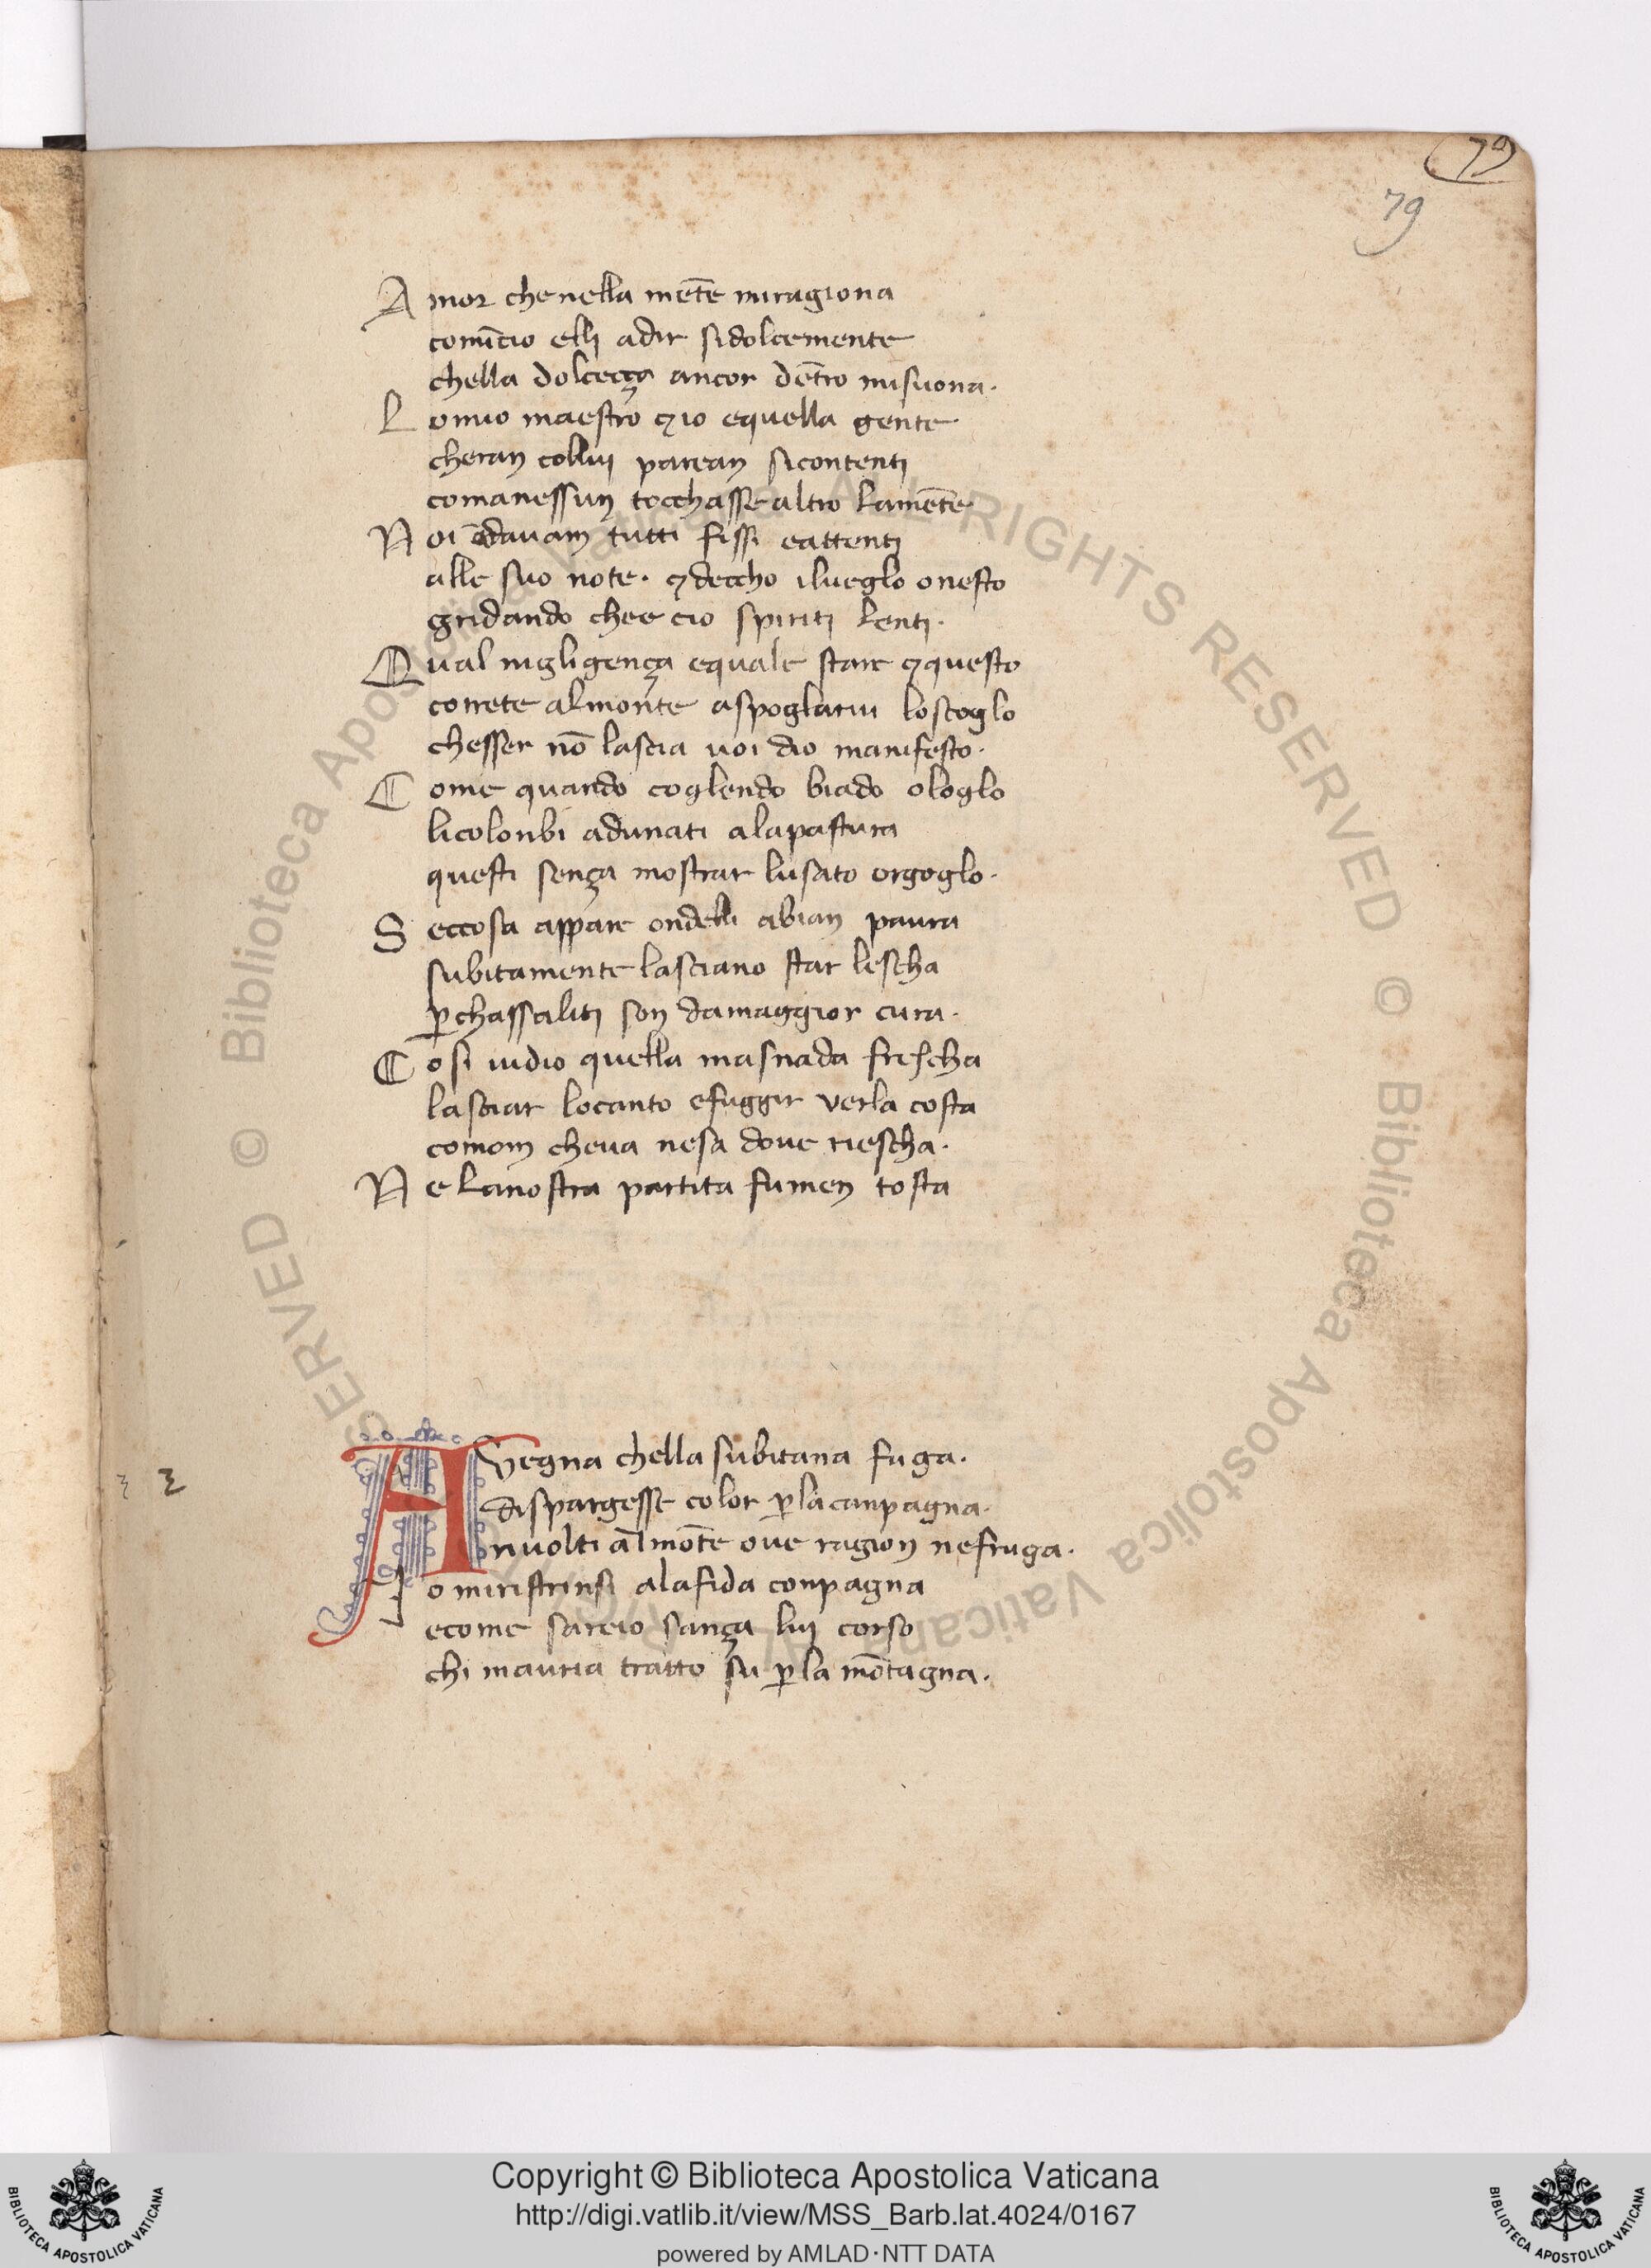 79
79
Amor chenella mēte miragiona
comīcio elli adir sidolcemente
chella dolceçça ancor dētro misuona.
Lomio maestro ⁊ io equella gente
cheran collui parean sicontenti
comanessun tocchasse altro lamēte
Noi ādavam tutti fissi eattenti
alle suo note. ⁊ deccho ilueglo onesto
gridando chee cio spiriti lenti.
Qual nigligença equale stare ⁊ questo
correte almonte aspoglarui loscoglo
chesser nō lascia uoi dio manifesto.
Come quando coglendo biado ologlo
licolonbi adunati alapastura
questi sença mostrar lusato orgoglo.
Seccosa appare ondelli abian paura
subitamente lasciano star lescha
p̱chassaliti son damaggior cura.
Cosi uidio quella masnada frescha
lasciar locanto efuggir verla costa
comom cheua nesa dove riescha.
Ne lanostra partita fumen tosta
Avegna chella subitana fuga.
dispargesse color p̱lacanpagna.
rivolti al mōte ove ragion nefruga.
Io miristrinsi alafida conpagna
ecome sareio sança lui corso
chi mauria tratto su p̱la mōtagna.
Copyright © Biblioteca Apostolica Vaticana
http://digi.vatlib.it/view/MSS_Barb.lat.4024/0167
powered by AMLAD·NTT DATA
BIBLIOTECA APOSTOLICA VATICANA
BIBLIOTECA APOSTOLICA VATICANA